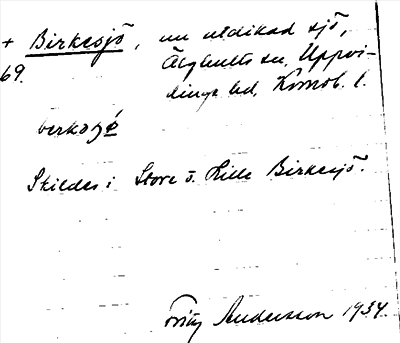 + Birkesjö, nu utdikad sjö,
69. Älghults sn, Uppvi-
dinge hd, Kronob. l.
berkosjö
Skildes i Stora o. Lilla Birkesjö.
Fritz Andersson 1934.